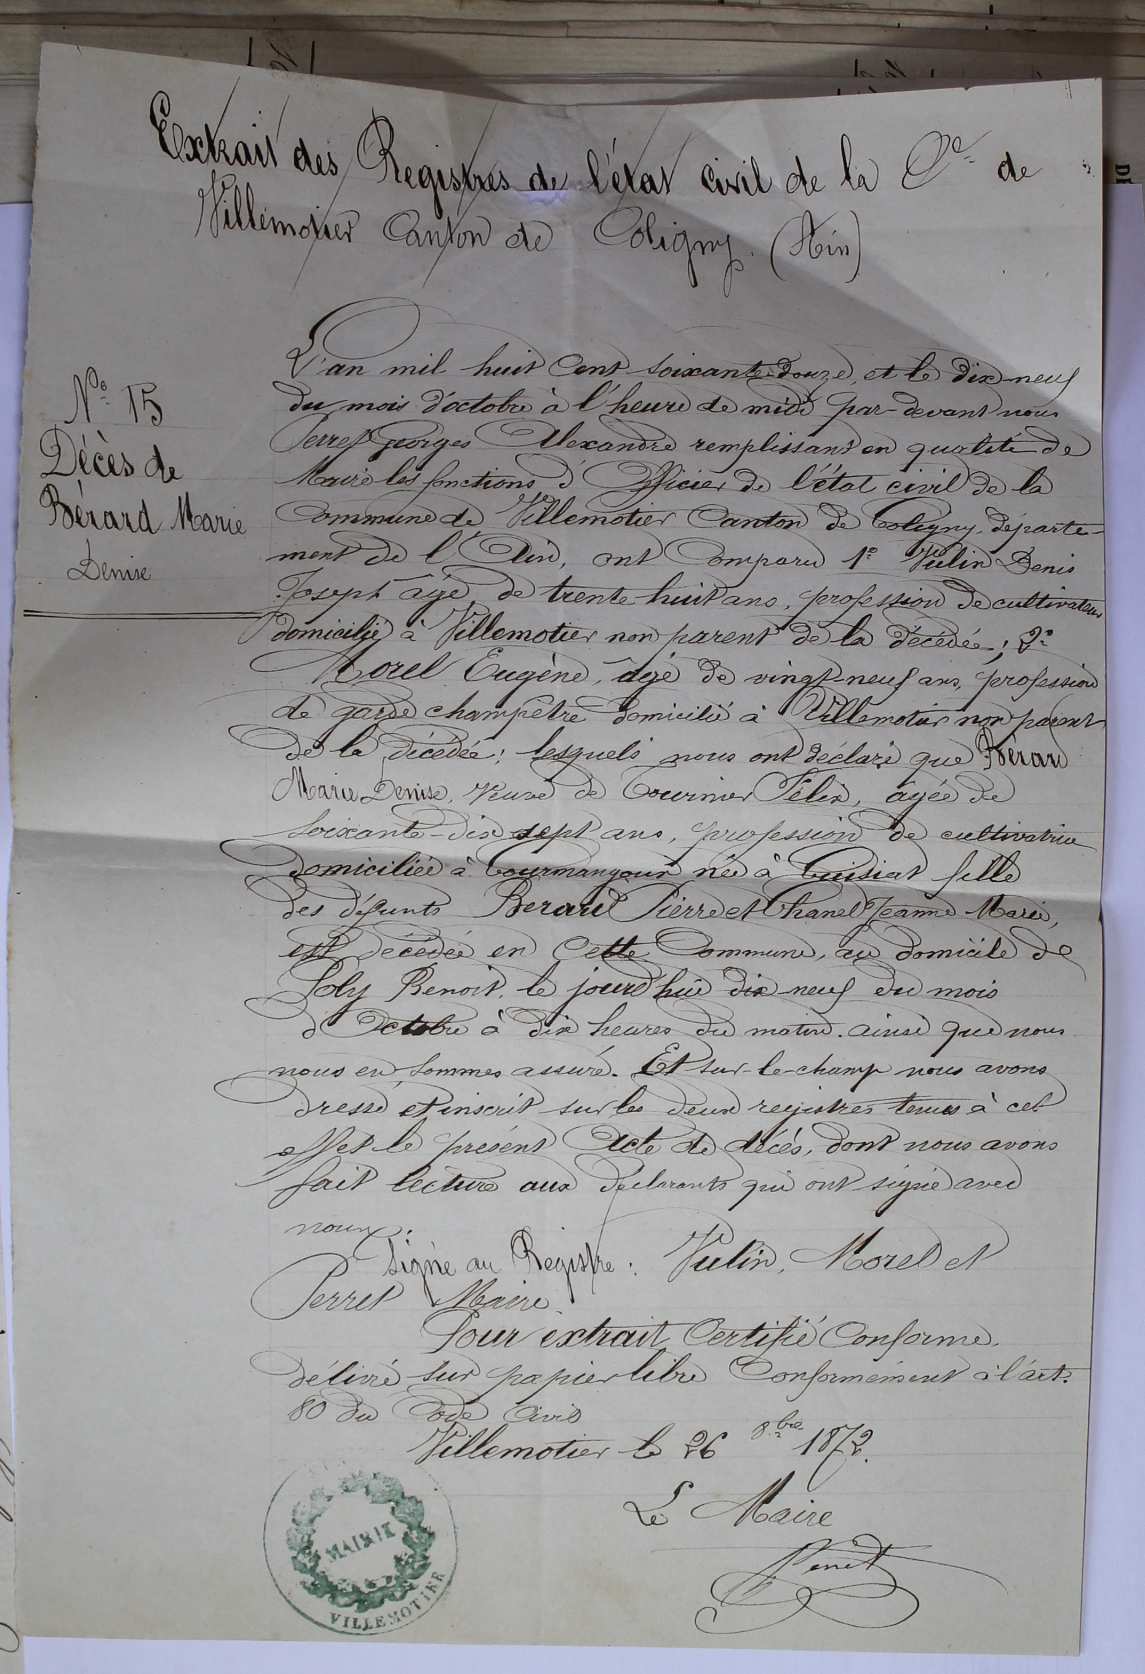 Extrait des Registres de l'état civil de la Cne de
Villemotier Canton de Coligny. (Ain)
N° 15
Décès de
Bérard Marie
Denise
L'an mil huit Cent soixante-douze, et le dix-neuf
du mois d'octobre à l'heure de midi par-devant nous
Perret Georges Alexandre remplissant en qualité de
Maire les fonctions d'Officier de l'état civil de la
Commune de Villemotier Canton de Coligny, départe-
ment de l'Ain, ont Comparu 1° Vulin Denis
Joseph âgé de trente-huit ans, profession de cultivateur
domicilié à Villemotier non parent de la décédée; 2°
Morel Eugène, âgé de vingt-neuf ans, profession
de garde champêtre domicilié à Villemotier non parent
de la décédée; lesquels nous ont déclaré que Bérard
Marie Denise, Veuve de Tournier Félix, âgée de
soixante-dix sept ans, profession de cultivatrice
domiciliée à Courmangoux née à Cuisiat fille
des défunts Berard Pierre et Chanel Jeanne Marie,
est décédée en Cette Commune, au domicile de
Poly Benoit, le jourd'hui dix neuf du mois
d'Octobre à dix heures du matin. ainsi que nous
nous en sommes assuré. Et sur-le-champ nous avons
dressé et inscrit sur les deux registres tenus à cet
effet le présent Acte de décès, dont nous avons
fait lecture aux déclarants qui ont signé avec
nous.
Signé au Registre: Vulin, Morel et
Perret Maire
Pour extrait Certifié Conforme.
délivré sur papier libre Conformément à l'art.
80 du Code Civil
Villemotier le 26 8bre 1872.
Le Maire
Perret
MAIRIE
VILLEMOTIER